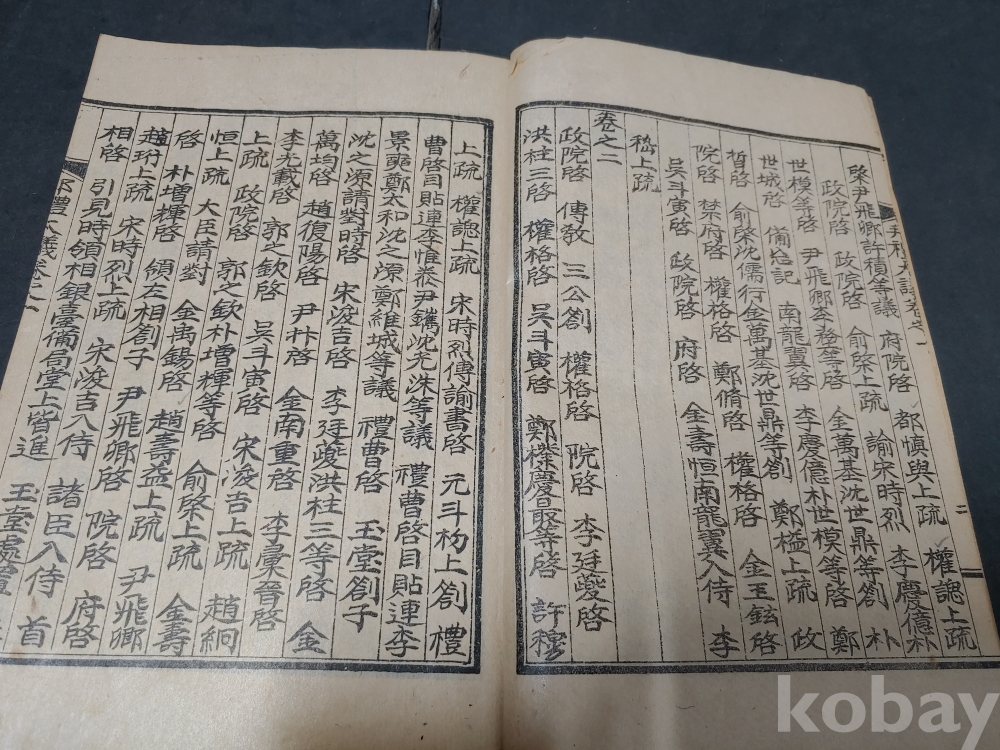 都愼與上疏 權諰上疏
啓尹飛卿許積等議 府院啓 諭宋時烈 李慶億朴
政院啓 政院啓 俞棨上疏 金萬基沈世鼎等劄 朴
世模等啓 尹飛卿李
世城啓 備忘記 南龍翼啓 李慶億朴世模等啓 鄭
俞棨沈儒行金萬基沈世鼎等劄 鄭榏上疏 政
院啓 禁府啓 權格啓 鄭脩啓 權格啓 金玉鉉啓
吳斗寅啓 政院啓 府啓 金壽恒南龍翼入侍 李
嵆上疏
卷之二
政院啓 傳敎 三公劄 權格啓 院啓 李廷夔啓
洪柱三啓 權格啓 吳斗寅啓 鄭榤慶㝡等啓 許穆
上疏 權諰上疏 宋時烈傳諭書啓 元斗杓上劄 禮
曹啓目貼連李惟泰尹鑴沈光洙等議 禮曹啓目貼連李
景奭鄭太和沈之源鄭維城等議 禮曹啓 玉堂劄子
沈之源請對時啓 宋浚吉啓 李廷夔洪柱三等啓 金
萬均啓 趙復陽啓 尹朴啓 金南重啓 李彙晉啓
李光載啓 郭之欽啓 吳斗寅啓 宋浚吉上疏 趙絅
上疏 政院啓 郭之欽朴增輝等啓 俞棨上疏 金壽
恒上疏 大臣請對 金禹錫啓 趙壽益上疏 尹飛卿
啓 朴增輝啓 領左相劄子 尹飛卿啓 院啓 府啓
趙珩上疏 宋時烈上疏 宋浚吉入侍 諸臣入侍 首
相啓 引見時領相銀臺備局堂上皆進 玉堂處置